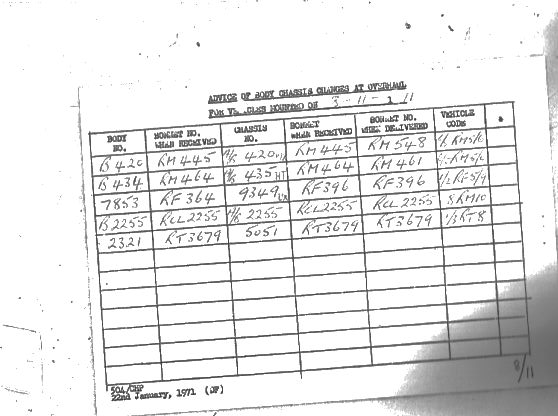 ADVICE OF BODY CHASSIS CHANGES AT OVERHAUL
FOR VEHICLES MOUNTED ON 3-11-
BODY NO. BONNET NO. WHEN RECEIVED CHASSIS NO. BONNET WHEN RECEIVED BONNET NO. WHEN DELIVERED VEHICLE CODE
B420 RM445 420 RM445 RM548 RM5/6
B434 RM464 435 RM464 RM461 RM5/6
7853 RF364 9349 RF396 RF396 RF5/9
B2255 RCL2255 2255 RCL2255 RCL2255 8RM10
2321 RT3679 5051 RT3679 RT3679 1/3 RT8
504/CHP
22nd January, 1971 (DF)
8/11